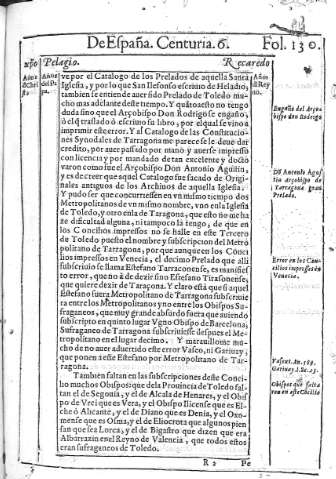 De España. Centuria. 6. Fol. 130.
Pelagio. Recaredo
ve por el Catalogo de los Prelados de aquella Santa
Iglesia, y por lo que San Ilefonso escriuio de Heladio,
tambien se entiende auer sido Prelado de Toledo mu
cho mas adelante deste tiempo. Y quanto a esto no tengo
duda sino que el Arçobispo Don Rodrigo se engañò,
ò el q̃ trasladò ò escriuio su libro, por el qual se vino a
imprimir esse error. Y al Catalogo de las Constitucio
nes Synodales de Tarragona me parece se le deue dar
credito, por auer passado por mano y auerse impresso
con licencia y por mandado de tan excelente y docto
varon como fue el Arçobispo Don Antonio Agustin,
y es de creer que aquel Catalogo fue sacado de Origi-
nales antiguos de los Archiuos de aquella Iglesia.
Y pudo ser que concurriessen en vn mismo tiempo dos
Metropolitanos de vn mismo nombre, vno en la Iglesia
de Toledo, y otro en la de Taragona, que esto no me ha
ze dificultad alguna, ni tampoco la tengo, de que en
los Concilios impressos no se halle en este Tercero
de Toledo puesto el nombre y subscripcion del Metro
politano de Tarragona, por que aunque en los Conci
lios impressos en Venecia, el decimo Prelado que alli
subscriuio se llama Estefano Tarraconense, es manifies
to error, que no à de dezir sino Estefano Tirasonense,
que quiere dezir de Taraçona. Y claro està que si aquel
Estefano fuera Metropolitano de Tarragona subscriuie
ra entre los Metropolitanos y no entre los Obispos Su-
fraganeos, que muy grande absurdo fuera que auiendo
subscripto en quinto lugar Vgno Obispo de Barcelona,
Sufraganeo de Tarragona subscriuiesse despues el Me-
tropolitano en el lugar decimo. Y marauillome mu-
cho de no auer aduertido este error Vaseo, ni Gariuay,
que ponen a este Estefano por Metropolitano de Tar-
ragona.
Tambien faltan en las subscripciones deste Conci-
lio muchos Obispos que de la Prouincia de Toledo fal-
tan el de Segouia, y el de Alcala de Henares, y el Obis-
po de Vrci que es Vera, y el Obispo Ilicense que es El-
che ò Alicante, y el de Diano que es Denia, y el Oxo-
mense que es Osma, y el de Eliocrota que algunos pien
san que sea Lorca, y el de Bigastro que dizen que era
Albarrazin en el Reyno de Valencia, que todos estos
eran sufraganeos de Toledo.
R 2 Pe
Engaño del Arço
bispo don Rodrigo
Dõ Antonio Agus
tin Arçobispo de
Tarragona gran
Prelado.
Error en los Con-
cilios impressos en
Venecia.
Obispos que falta
ron en este Cõcilio